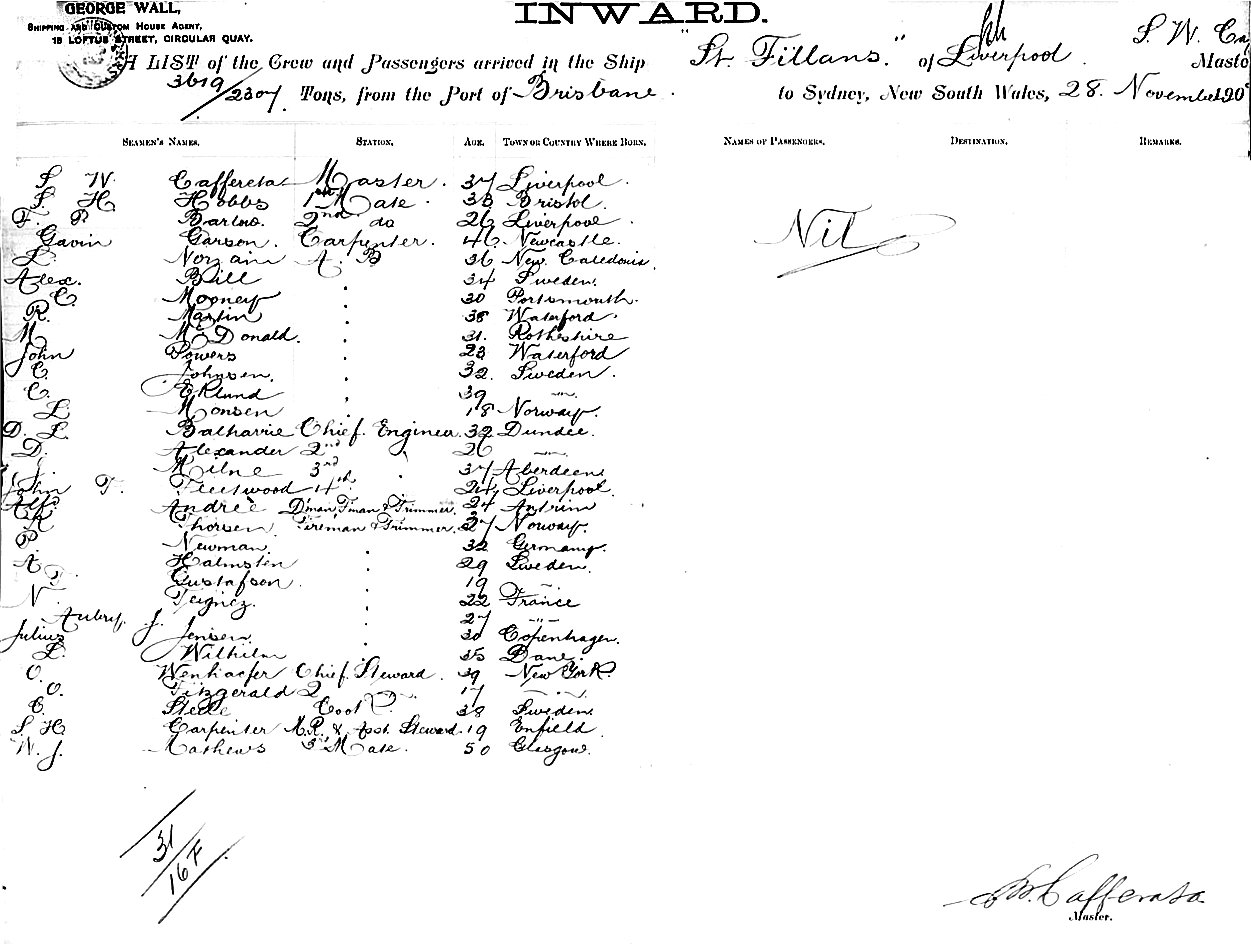 GEORGE WALL,
SHIPPING AND CUSTOM HOUSE AGENT,
15 LOFTUS STREET, CIRCULAR QUAY.
INWARD.
A LIST of the Crew and Passengers arrived in the Ship "St. Fillans." of Liverpool S. W. Ca
Maste
3619/2307 Tons, from the Port of Brisbane to Sydney, New South Wales, 28. November 190
SEAMEN'S NAMES. STATION. AGE. TOWN OR COUNTRY WHERE BORN. NAMES OF PASSENGERS. DESTINATION. REMARKS.
S W. Caffereta Master. 37 Liverpool.
S. H Hobbs 1st Mate. 38 Bristol.
F. P. Barlow. 2nd do 26 Liverpool.
Gavin Garson. Carpenter. 46 Newcastle.
Nil
L. A. B 36 New Caledonia.
Alex. Bill " 34 Sweden.
C. Mooney " 30 Portsmouth.
R. Martin " 38 Waterford.
M McDonald. " 31. Rotheshire
John Powers " 23 Waterford
C. Johnsen. " 32. Sweden.
C. Eklund " 39 "
L. Monsen " 18 Norway.
D. L. Balharrie Chief. Engineer. 32 Dundee.
D. Alexander 2nd 26 "
J. Milne 3rd " 37 Aberdeen.
John F. Fleetwood 4th 24 Liverpool.
Alf. Andreè D'man, F'man & Trimmer. 24 Antrim
K Thorsen Fireman & Trimmer. 27 Norway.
P. Newman. " 32 Germany.
A. Halmsten " 29 Sweden.
F. Gustafson. " 19 "
N. " 22 France
Aubry. J. " 27 "
Julius Jensen. " 30 Copenhagen.
L. Wilhilm " 35 Dane.
O. Wenhaefer Chief. Steward. 39 New York.
O. Fitzgerald 2 " 17 "
C. Steele Cook 38 Sweden.
S. H. Carpenter M.R. & Asst. Steward. 19 Enfield.
W. J. Mathews 3rd Mate. 50 Glasgow.
31/16 F
S.W. Cafferata
Master.